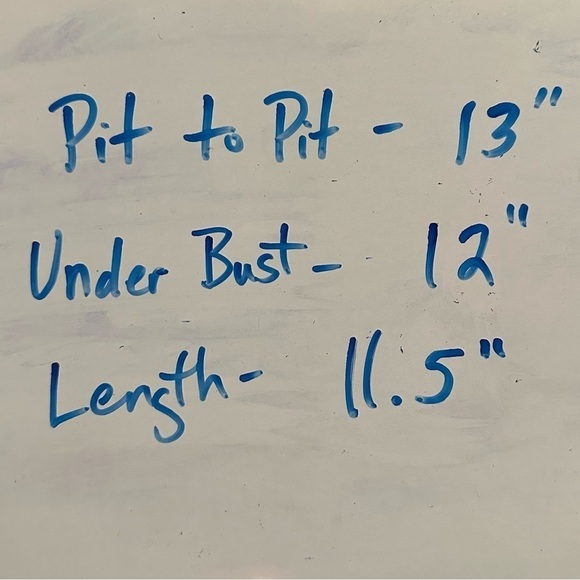 Pit to Pit - 13"
Under Bust - 12"
Length - 11.5"